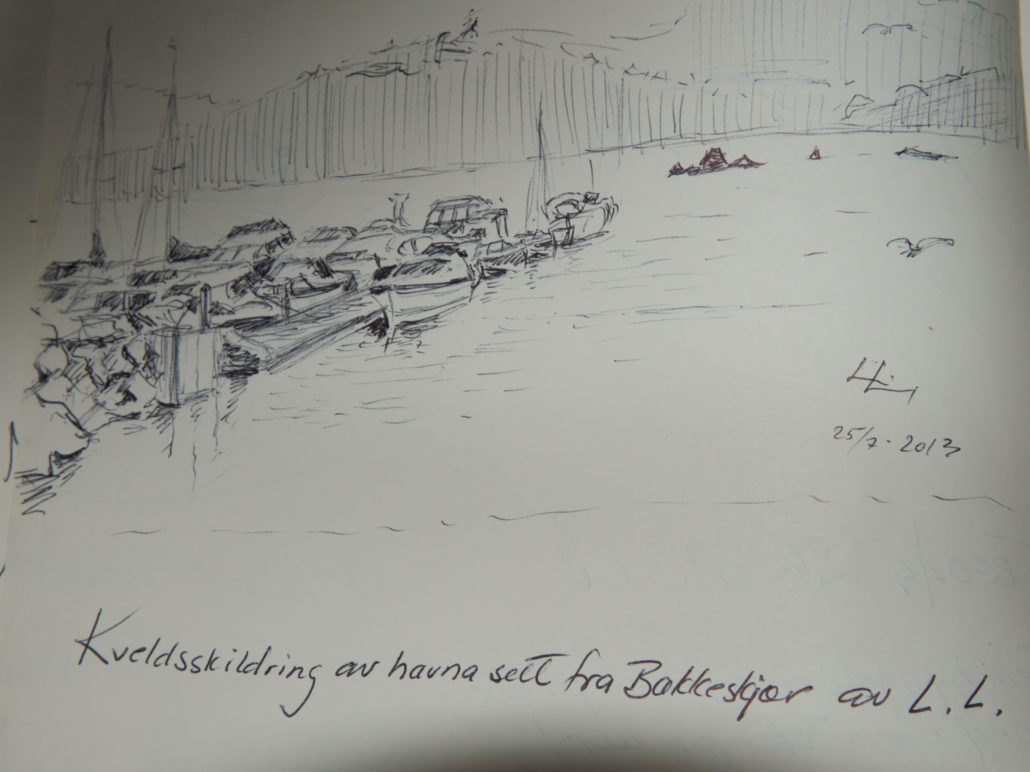 LL
25/7-2013
Kveldsskildring av havna sett fra Bakkeskjær av L.L.